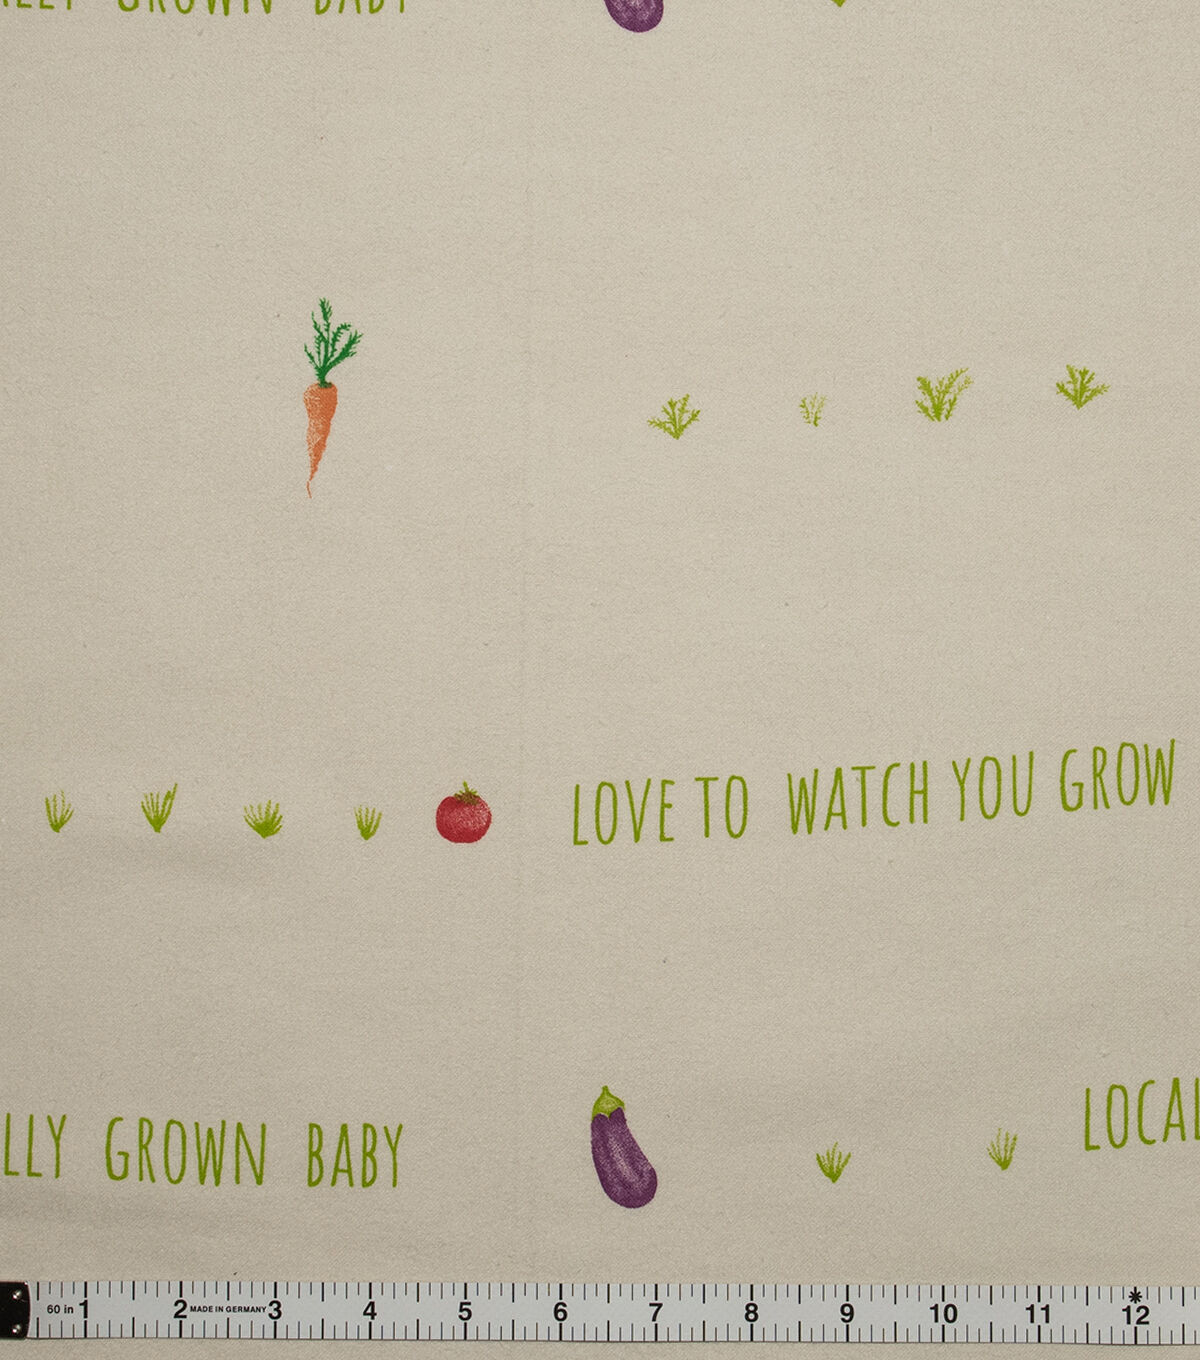 GROWN BABY
LOVE TO WATCH YOU GROW
LLY GROWN BABY
LOCAL
60 in 1 2 MADE IN GERMANY 3 4 5 6 7 8 9 10 11 12